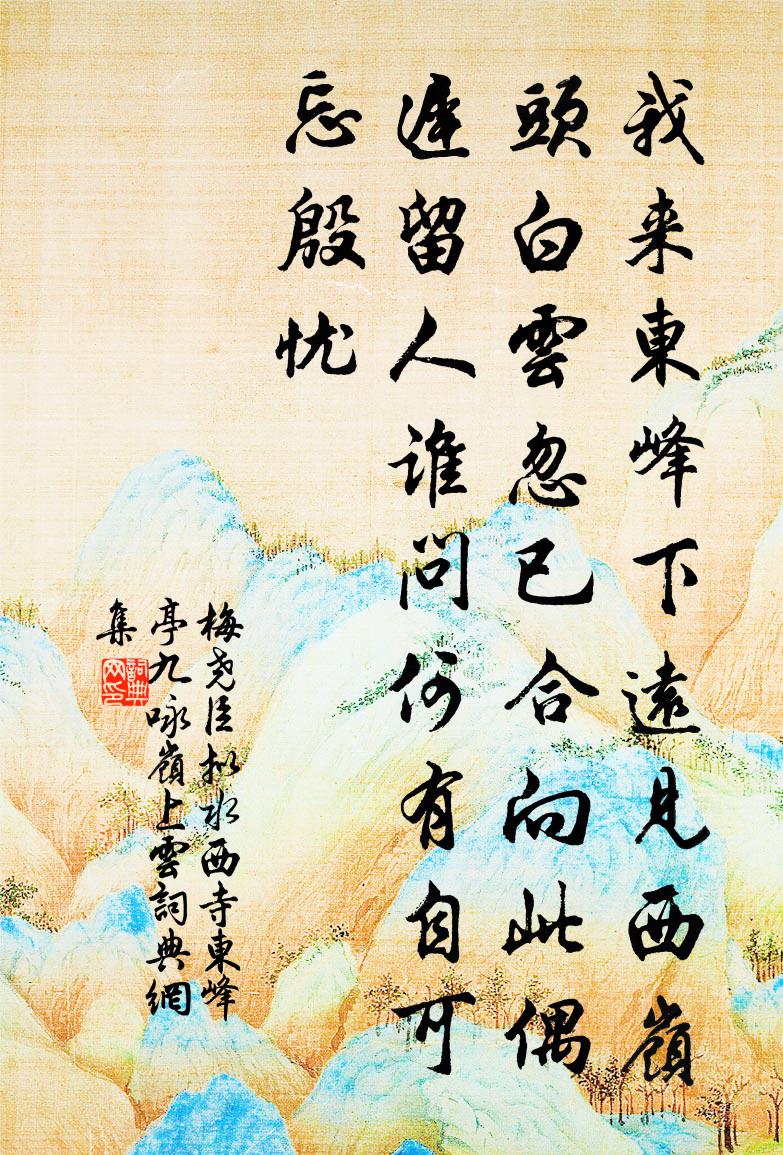 我来東峰下遠見西嶺
頭白雲忽已合向此偶
遲留人誰問何有自可
忘殷忧
梅尧臣拟水西寺東峰
亭九咏嶺上雲詞典網
集
詞典网印